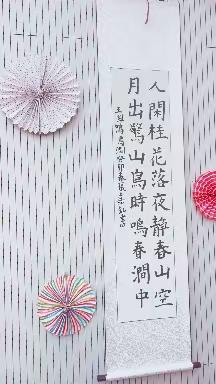 人閑桂花落夜静春山空
月出驚山鳥時鳴春澗中
王維鳴鳥澗癸卯春